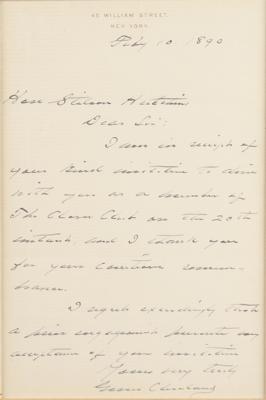 45 WILLIAM STREET,
NEW YORK.
Feby 10 1890
Hon Stilson Hutchins
Dear Sir:
I am in receipt of
your kind invitation to dine
with you as a member of
The Clover Club on the 20th
instant, and I thank you
for your courteous remem-
brance.
I regret exceedingly that
a prior engagement prevents my
acceptance of your invitation
Yours very truly
Grover Cleveland